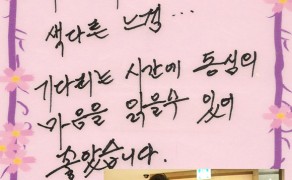 색다른 느낌...
기다리는 시간에 동심의
마음을 읽을수 있어
좋았습니다.